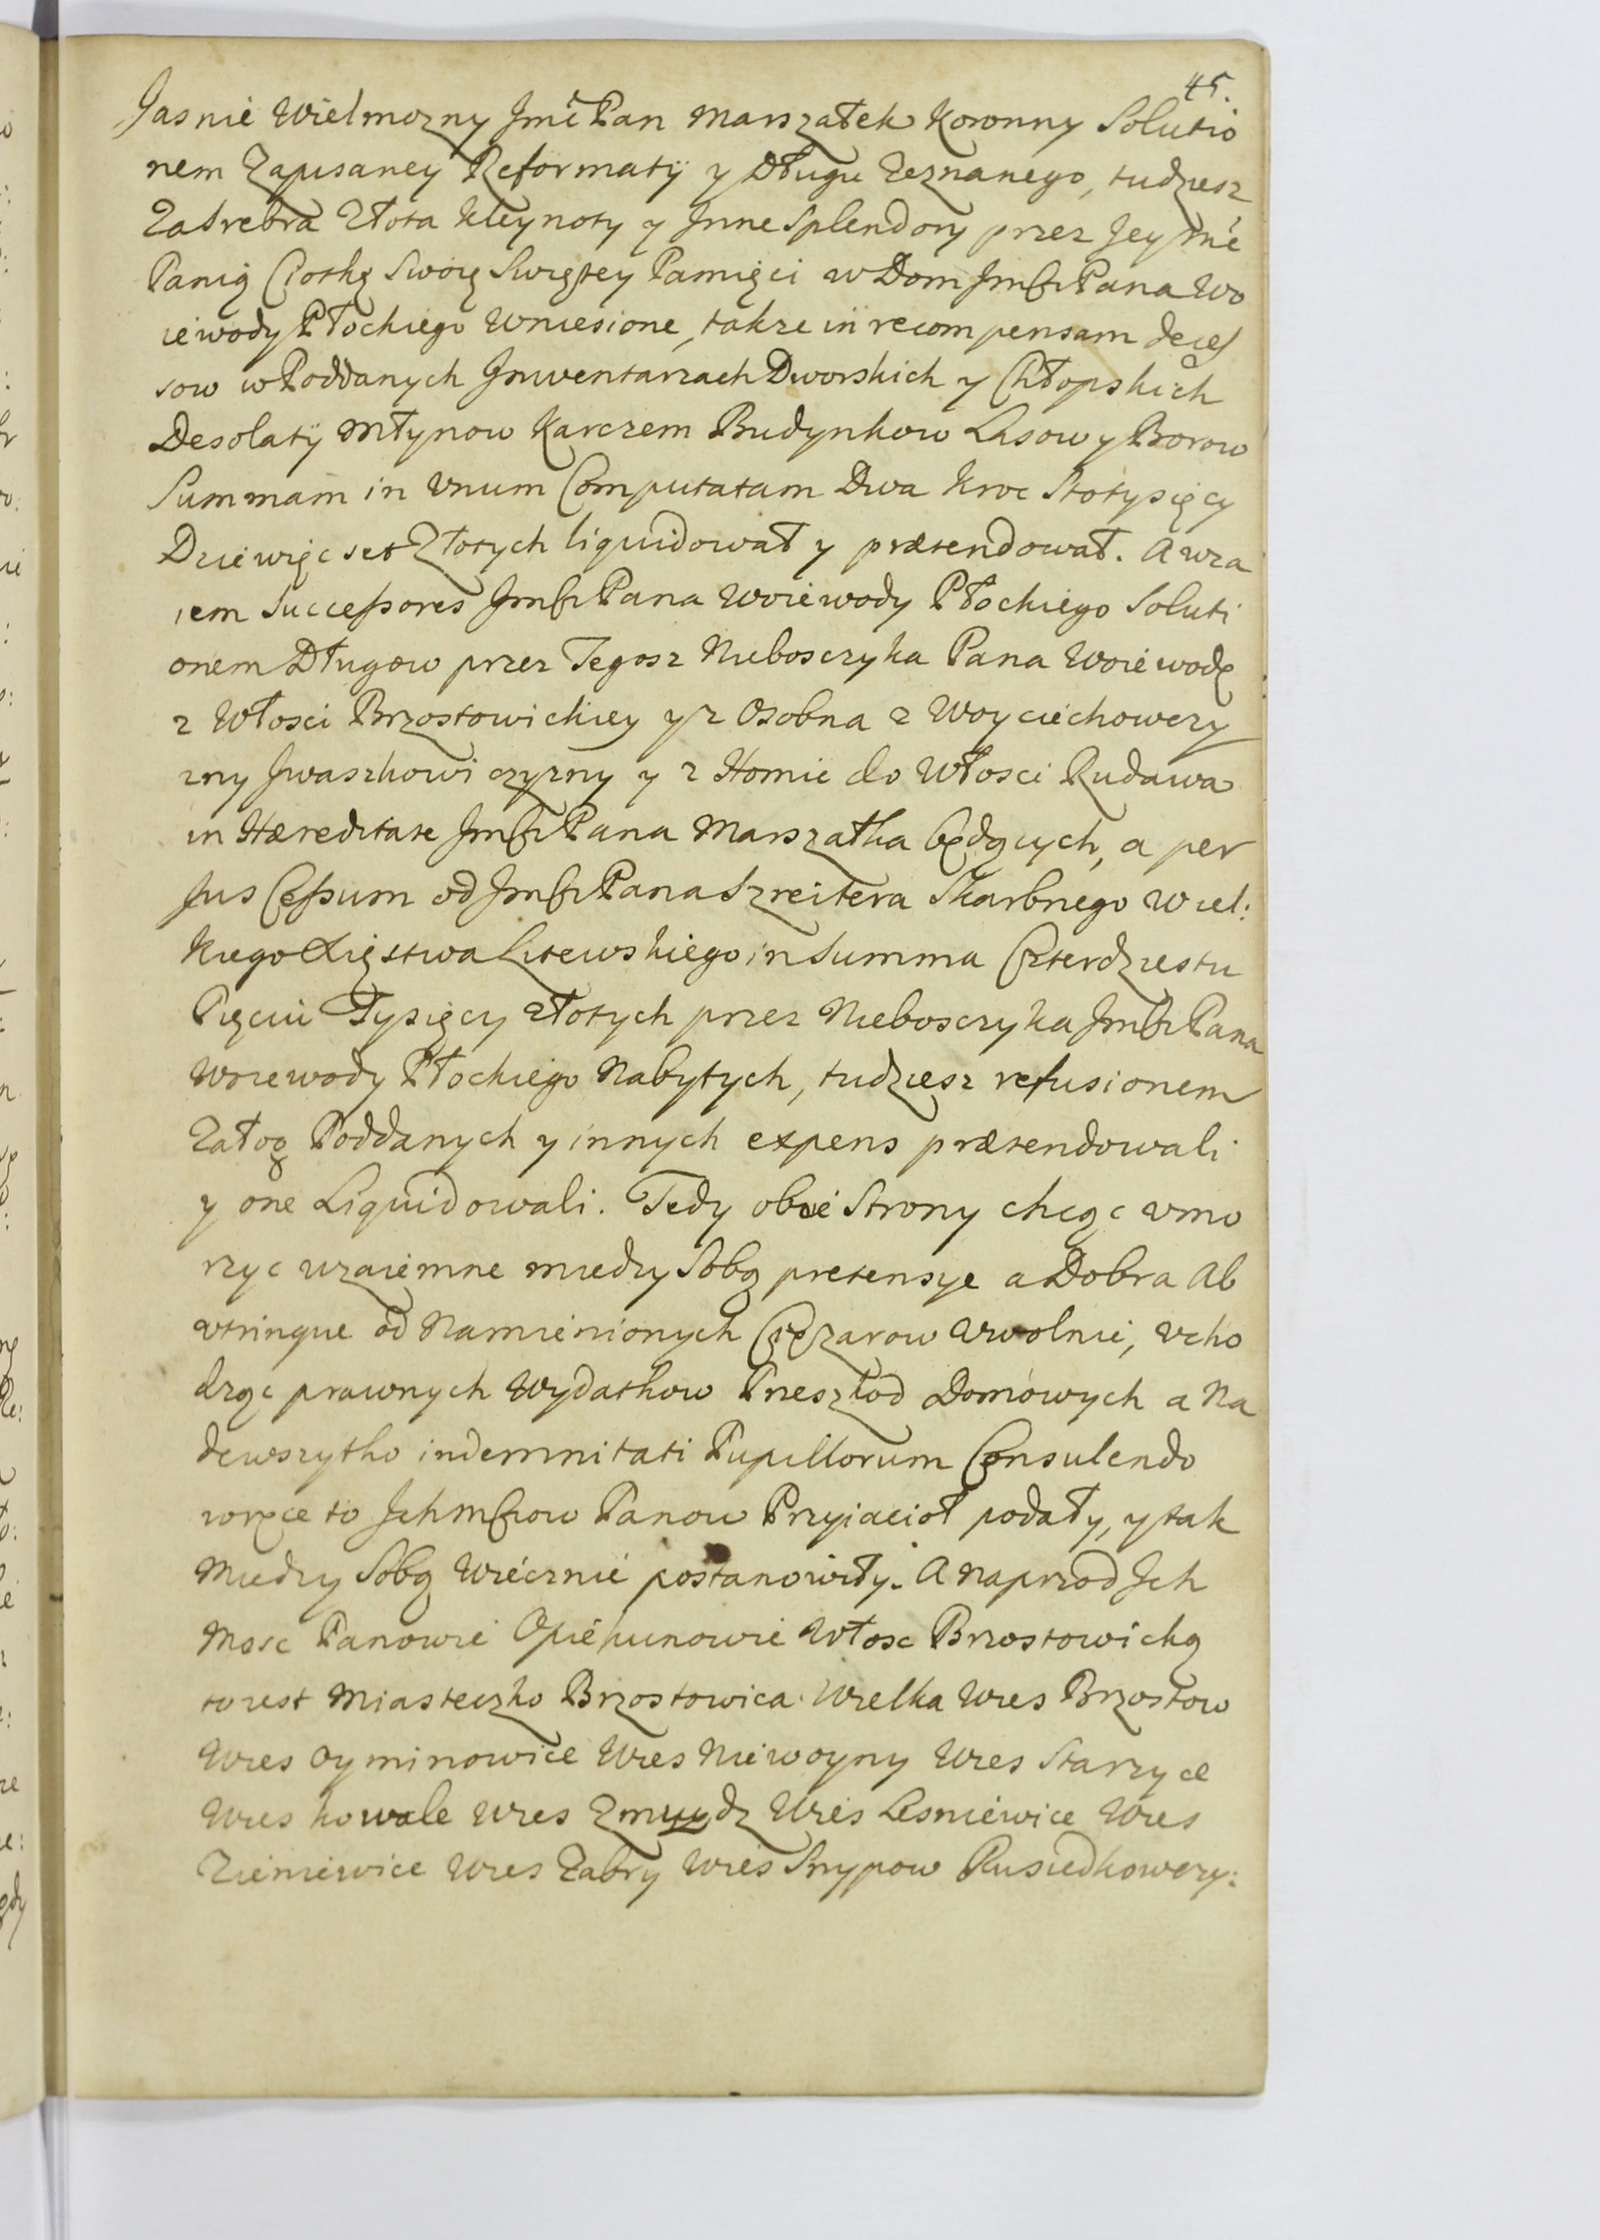 45.
Jasnie Wielmozny Jmc Pan Marszałek Koronny Solutio
nem Zapisaney Reformatÿ y Długu Zeznanego, tudziesz
Zasrebra Złota Kleynoty y Jnne Splendory przez Jey Mć
Panią Ciotkę Swoię Swiętey Pamięci w Dom Jmści Pana Wo
iewody Płockiego Wniesione, takze in recompensam deces
sow w Poddanych Jnwentarzach Dworskich y Chłopskich
Desolatÿ Młynow Karczem Budynkow Lasow y Borow
Summam in Vnum Computatam Dwa kroc Stotysięcy
Dziewięc set Złotych liquidował y prætendował. A wza
iem Successores Jmści Pana Woiewody Płockiego Soluti
onem Długow przez Tegosz Nieboszczyka Pana Woiewodę
z Włosci Brzostowickiey y z Osobna z Woyciechowczy
zny Jwaszkowiczyzny y z Homie do Włosci Rudawa
in Hæreditate Jmści Pana Marszałka będących, a per
Jus Cessum od Jmści Pana Szreitera Skarbnego Wiel:
kiego Xięstwa Litewskiego in Summa Czterdziestu
Pięciu Tysięcy złotych przez Nieboszczyka Jmści Pana
Woiewody Płockiego Nabytych, tudziesz refusionem
Załog Poddanych y innych expens prætendowali
y one Liquidowali. Tedy obie Strony chcąc vmo
rzyc wzaiemne miedzy Sobą pretensye a Dobra Ab
vtrinque od Namienionych Ciężarow Vwolnić, Vcho
dząc prawnych Wydatkow Przeszkod Domowych a Na
dewszytko indemnitati Pupillorum Consulendo
w ręce to Jchmściow Panow Przyiacioł podały, y tak
Miedzy Sobą Wiecznie postanowiły. A naprzod Jch
Mosc Panowie Opiekunowie Włosc Brzostowicką
to iest Miasteczko Brzostowica Wielka Wies Brzostow
Wies Oyminowice Wies Niewoyny Wies Starzyce
Wies kowale Wies Zmuydz Wies Lesniewice Wies
Zieniewice Wies Zabry Wies Snypow Rusiedkowczy: